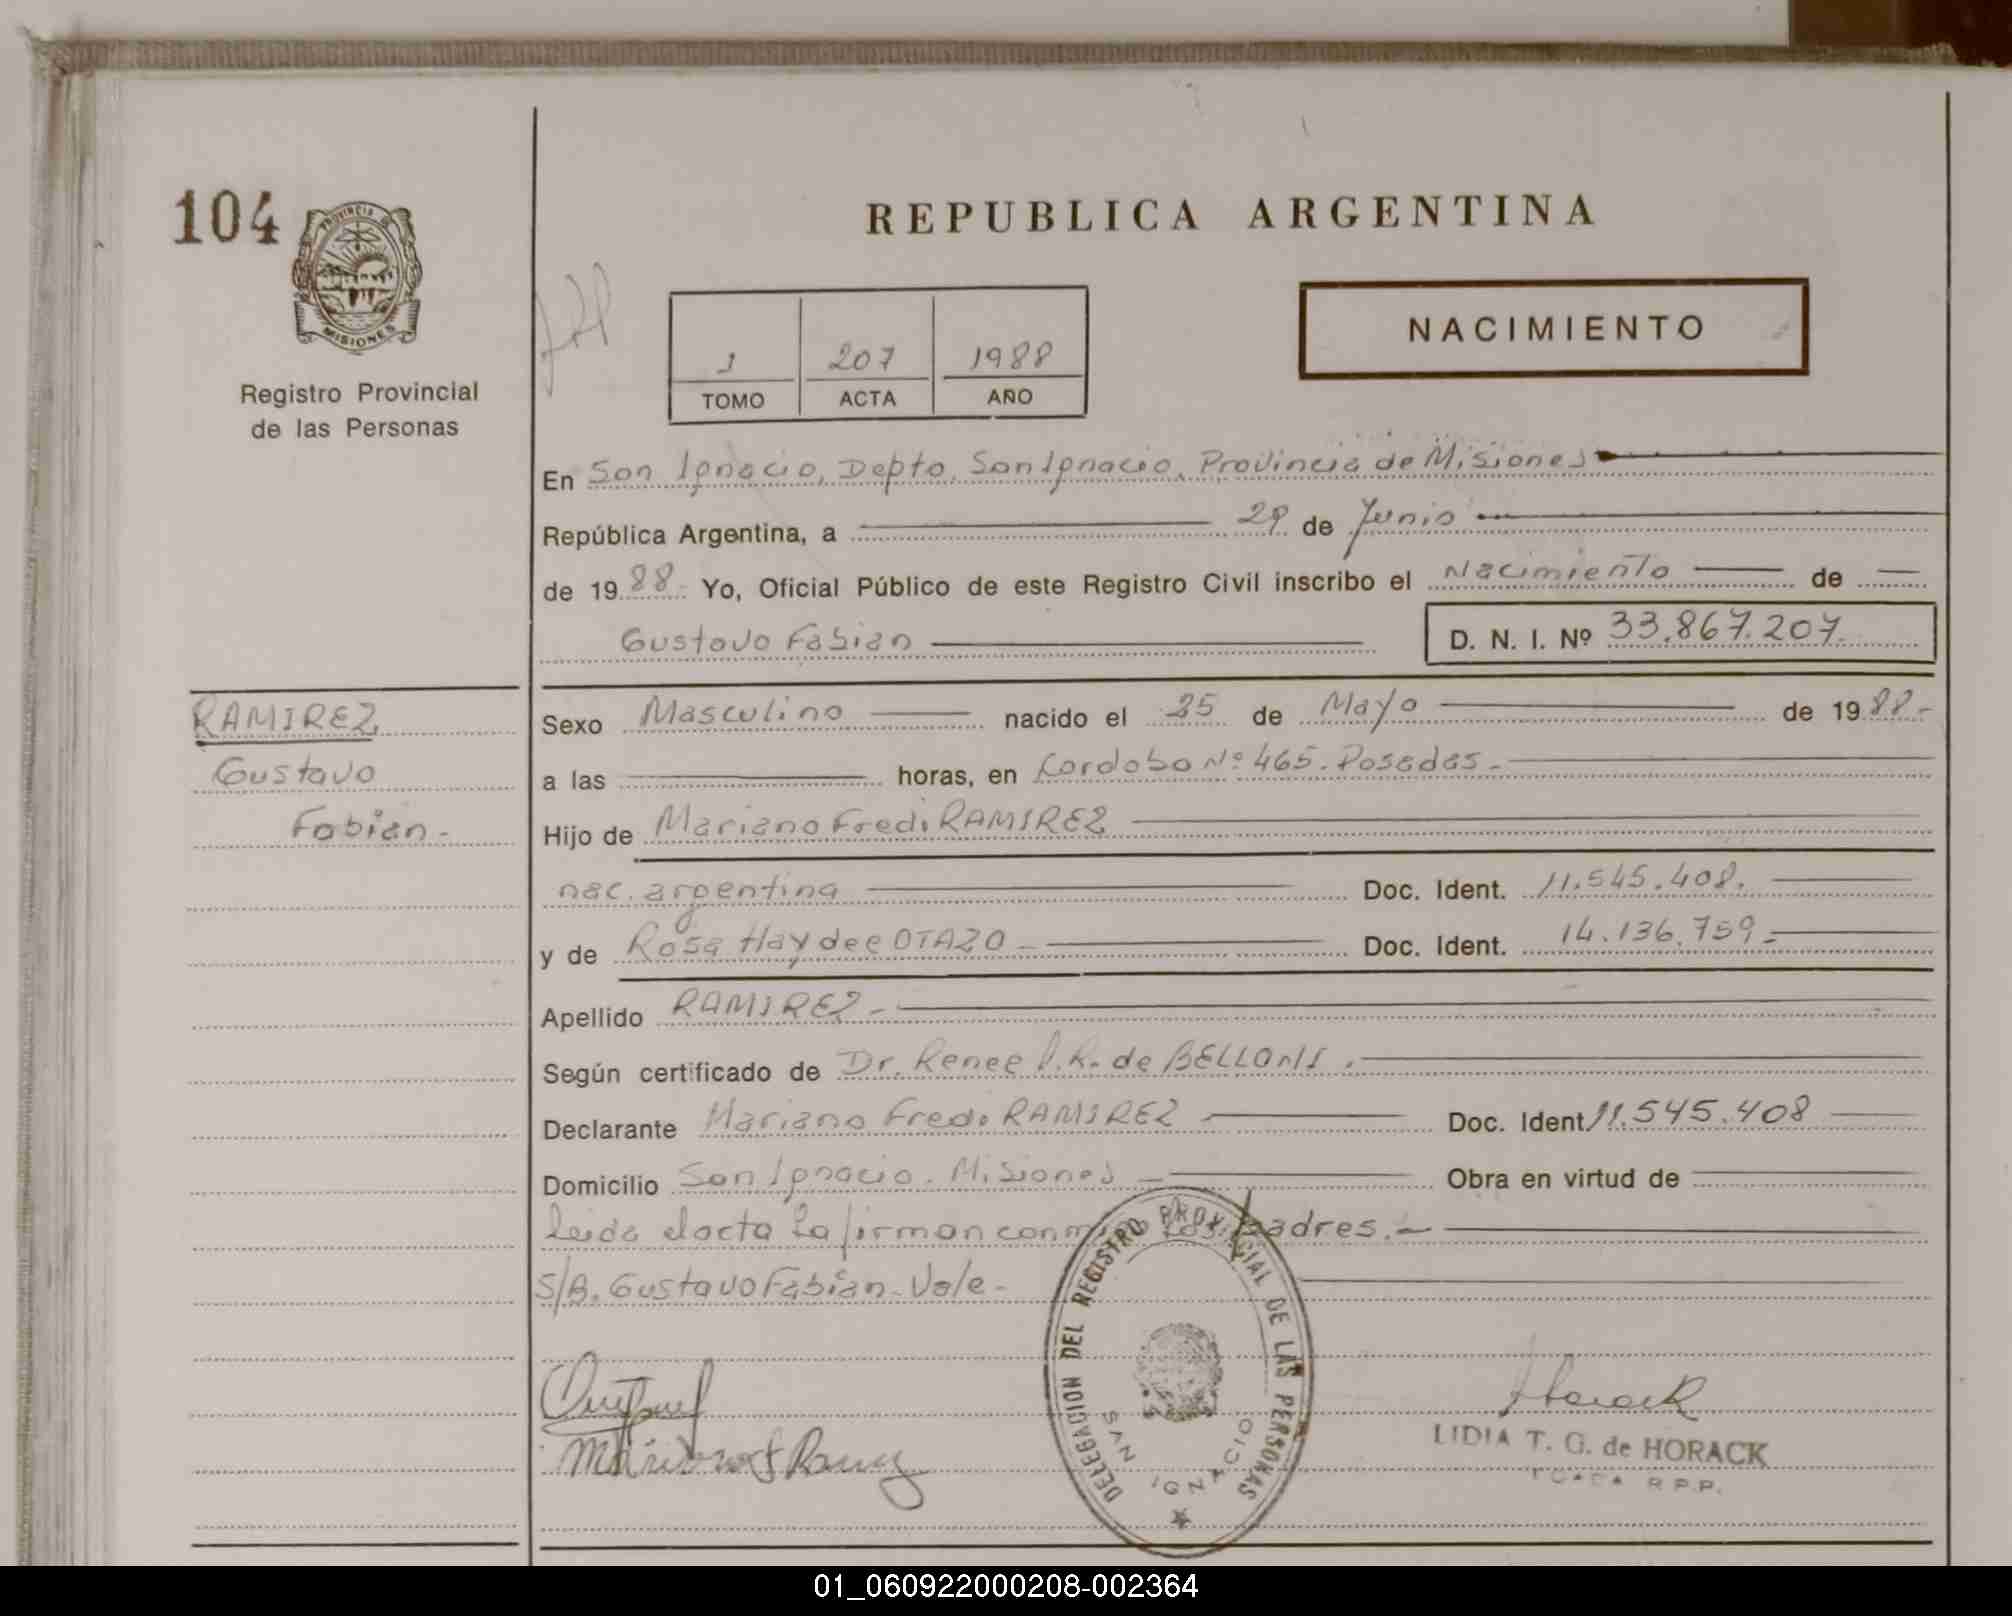 104
PROVINCIA DE
MISIONES
Registro Provincial
de las Personas
REPUBLICA ARGENTINA
1 207 1988
TOMO ACTA AÑO
NACIMIENTO
En San Ignacio, Depto. San Ignacio, Provincia de Misiones
República Argentina, a 29 de Junio
de 1988. Yo, Oficial Público de este Registro Civil inscribo el Nacimiento de
Gustavo Fabian D. N. I. Nº 33.867.207.
RAMIREZ
Gustavo
Fabian.-
Sexo Masculino nacido el 25 de Mayo de 1988.-
a las horas, en Cordoba Nº 465. Posadas.-
Hijo de Mariano Fredi RAMIREZ
nac. argentina Doc. Ident. 11.545.408.
y de Rosa Haydee OTAZO Doc. Ident. 14.136.759.-
Apellido RAMIREZ.-
Según certificado de Dr. Renee R. de
Declarante Mariano Fredi RAMIREZ Doc. Ident. 11.545.408
Domicilio San Ignacio. Misiones Obra en virtud de
Leida el acta la firman conmigo Los padres.-
S/B. Gustavo Fabian. Vale.-
DELEGACION DEL REGISTRO PROVINCIAL DE LAS PERSONAS
SAN IGNACIO
Horack
LIDIA T. G. de HORACK
R.P.P.
01_060922000208-002364